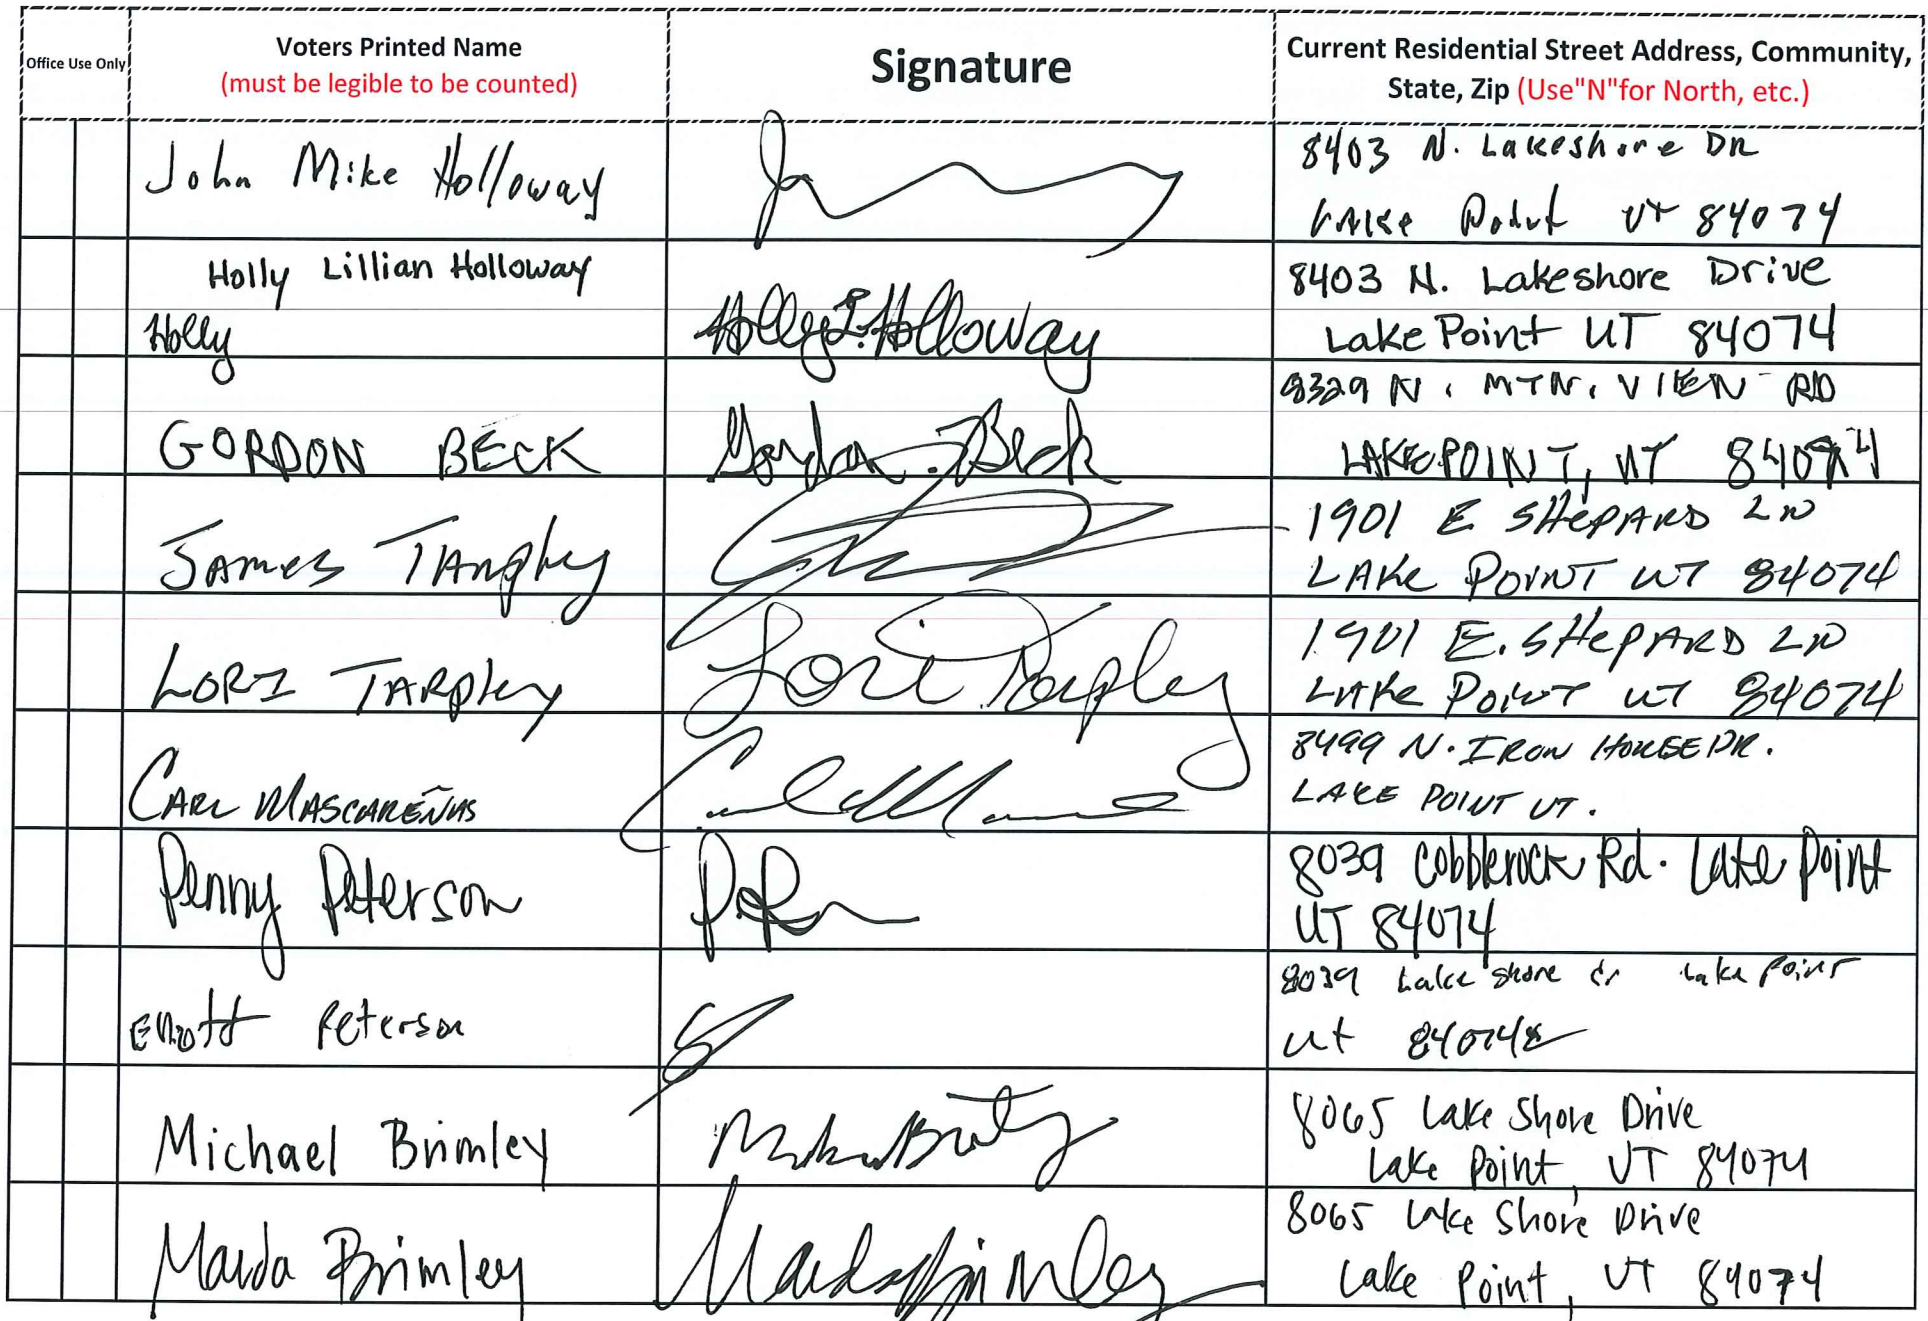 Office Use Only
Voters Printed Name
(must be legible to be counted)
Signature
Current Residential Street Address, Community,
State, Zip (Use"N"for North, etc.)
John Mike Holloway
8403 N. Lakeshore DR
LAKe Point UT 84074
Holly Lillian Holloway
Holly
Holly L. Holloway
8403 N. Lakeshore Drive
Lake Point UT 84074
GORDON BECK
Gordon Beck
8329 N. MTN. VIEW RD
LAKEPOINT, UT 84074
JAMES TARpley
1901 E SHePARD LN
LAKe POINT UT 84074
LORI TARpley
Lori Tarpley
1901 E. SHePARD LN
LAKe POINT UT 84074
CARL MASCAREÑAS
8499 N. IRON HORSE DR.
LAKE POINT UT.
Penny Peterson
8039 Cobblerock Rd. Lake Point
UT 84074
Peterson
8039 Lake shore dr Lake Point
ut 84074
Michael Brimley
8065 Lake Shore Drive
Lake Point, UT 84074
Marda Brimley
Marda Brimley
8065 Lake Shore Drive
Lake Point, UT 84074